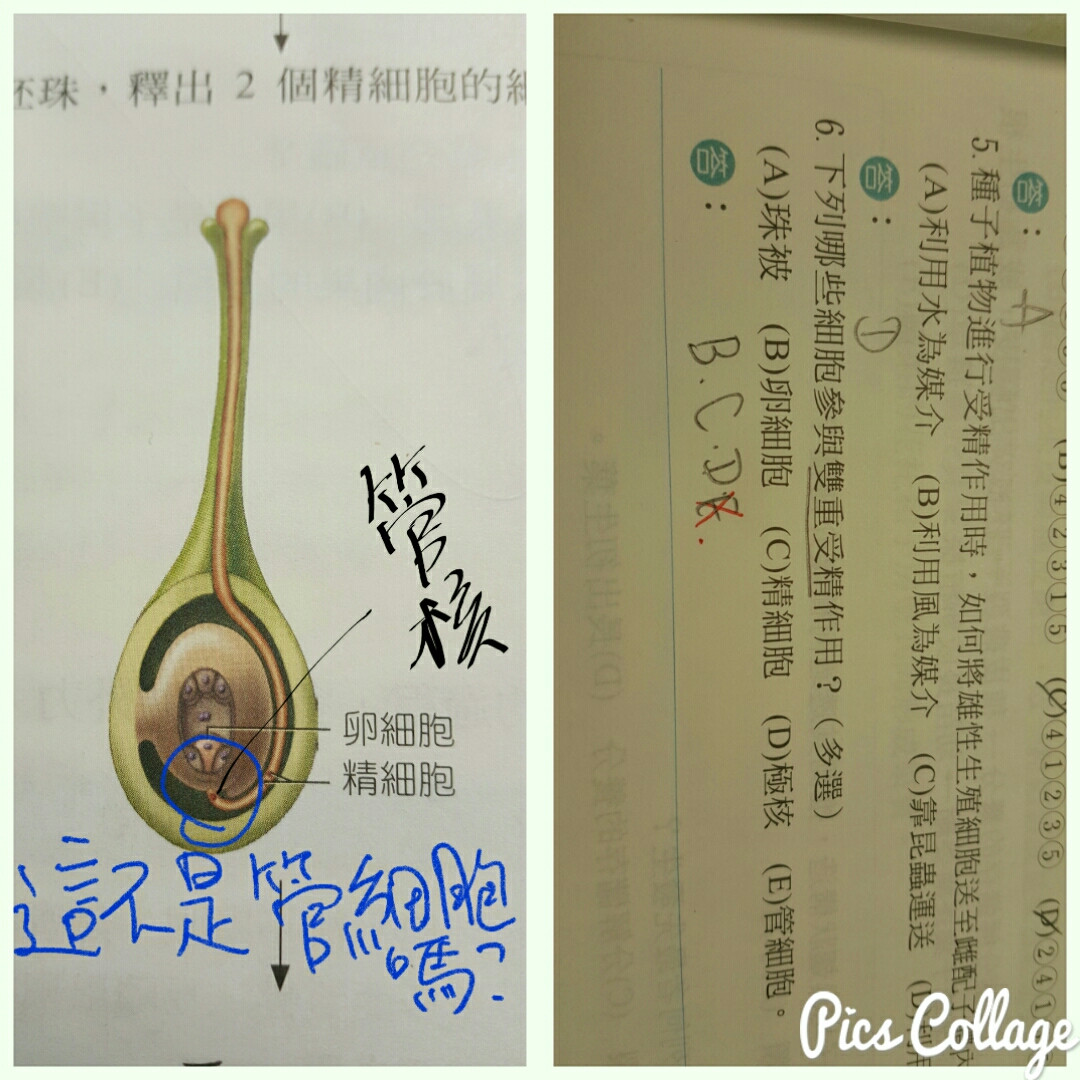 胚珠，釋出 2 個精細胞的
管核
卵細胞
精細胞
這不是管細胞
嗎?
(B)④②③①⑤ (C)④①②③⑤ (D)②④①
答： A
5. 種子植物進行受精作用時，如何將雄性生殖細胞送至雌配子
(A)利用水為媒介 (B)利用風為媒介 (C)靠昆蟲運送
答： D
6. 下列哪些細胞參與雙重受精作用？（多選）
(A)珠被 (B)卵細胞 (C)精細胞 (D)極核 (E)管細胞。
答： B.C.D
Pics Collage